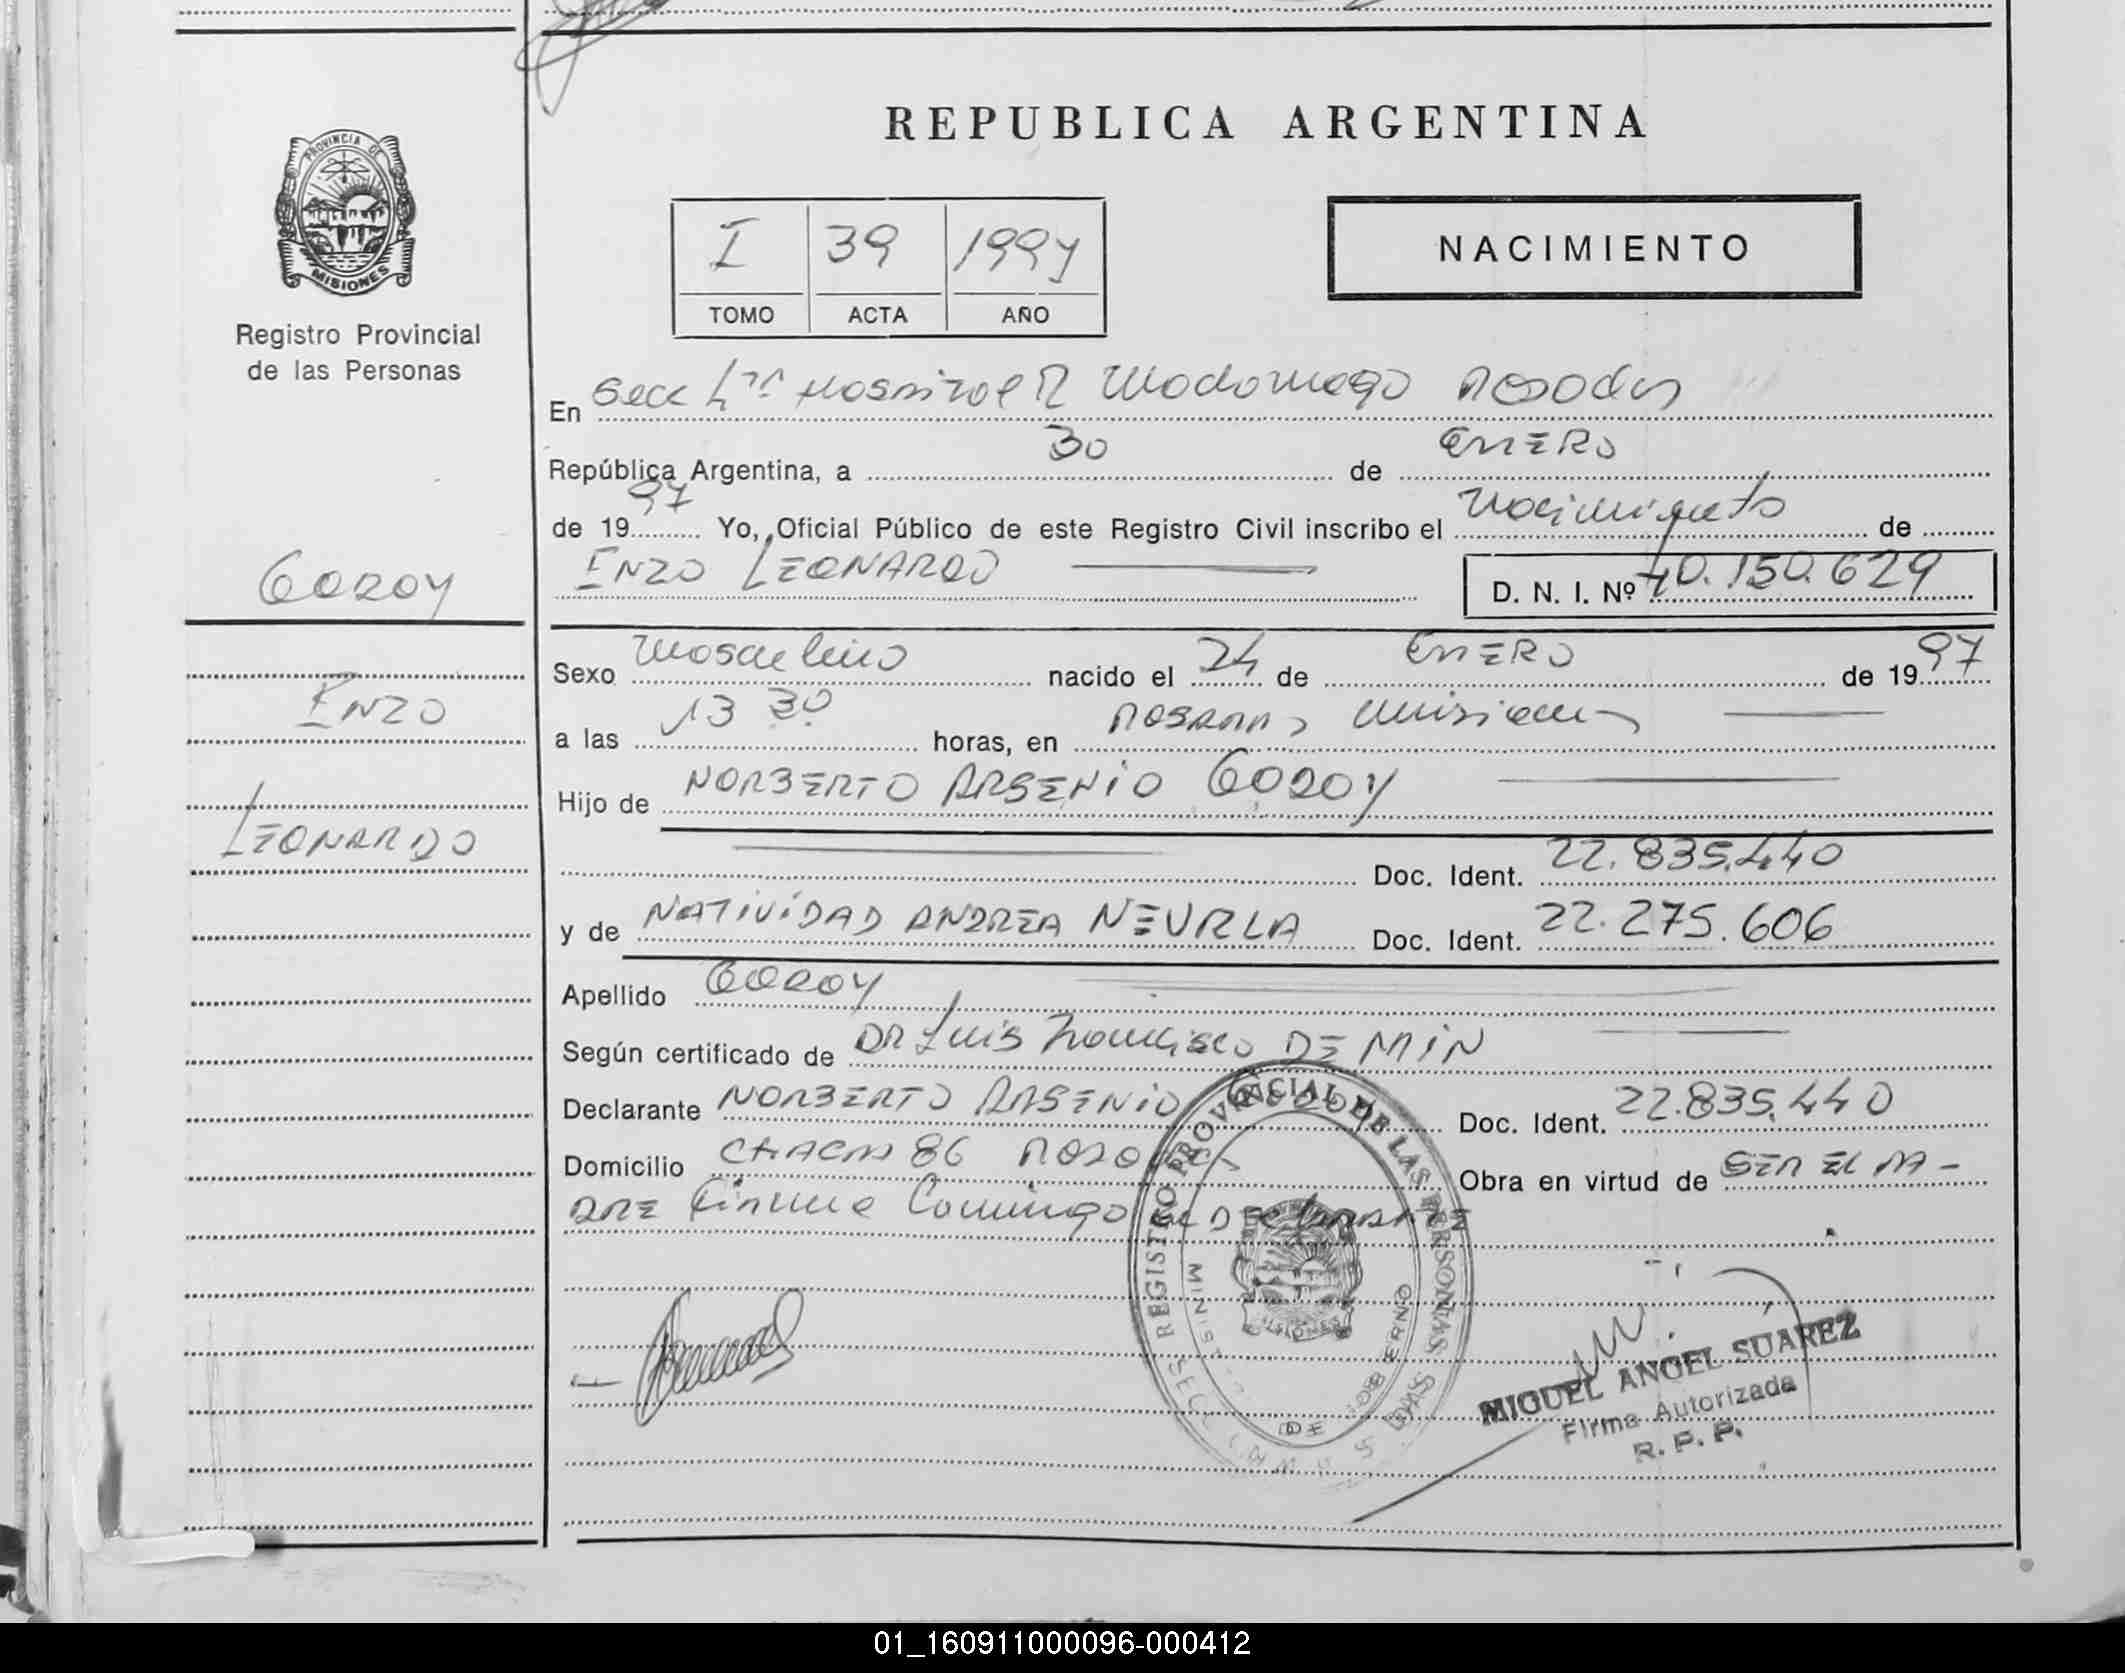 REPUBLICA ARGENTINA
PROVINCIA DE
MISIONES
Registro Provincial
de las Personas
I 39 1997
TOMO ACTA AÑO
NACIMIENTO
En Secc Hospital R Madariaga Posadas
República Argentina, a 30 de ENERO
de 1997 Yo, Oficial Público de este Registro Civil inscribo el Nacimiento de
ENZO LEONARDO D. N. I. Nº 40.150.629
GODOY
ENZO
LEONARDO
Sexo Masculino nacido el 24 de ENERO de 1997
a las 13 30 horas, en POSADAS, Misiones
Hijo de NORBERTO ARSENIO GODOY
Doc. Ident. 22.835.440
y de NATIVIDAD ANDREA NEVRLA Doc. Ident. 22.275.606
Apellido GODOY
Según certificado de DR Luis Francisco DE MIN
Declarante NORBERTO ARSENIO GODOY Doc. Ident. 22.835.440
Domicilio CHACRA 86 POSADAS Obra en virtud de SER EL PA-
DRE Firma Conmigo EL DECLARANTE
REGISTRO PROVINCIAL DE LAS PERSONAS
MIGUEL ANGEL SUAREZ
Firma Autorizada
R. P. P.
01_160911000096-000412